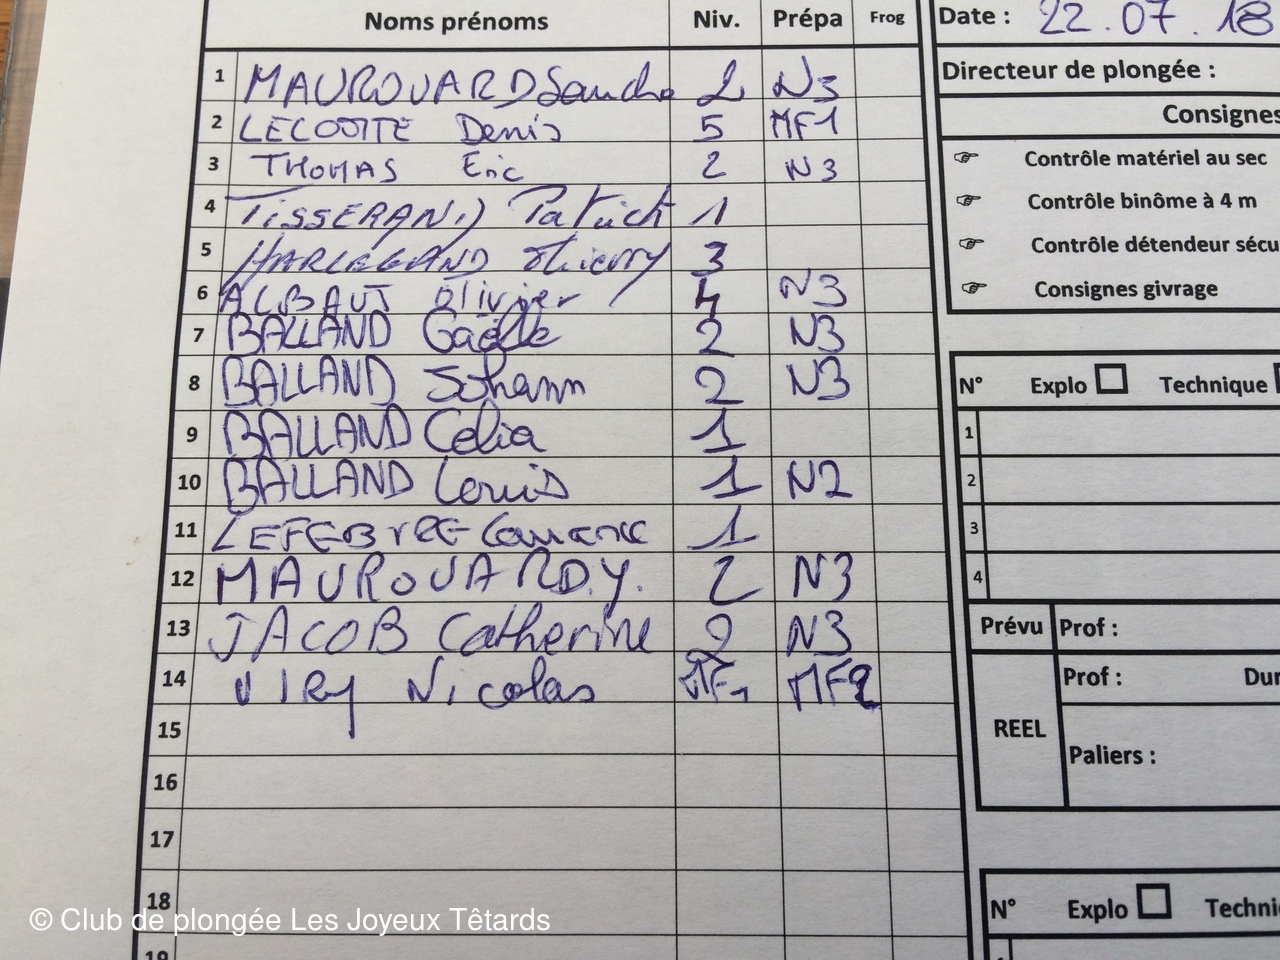 Noms prénoms Niv. Prépa Frog
1 MAUROUARD Sandra 2 N3
2 LECOMTE Denis 5 MF1
3 THOMAS Eric 2 N3
4 TISSERAND Patrick 1
5 Thierry 3
6 ALBAUT Olivier 4 N3
7 BALLAND Gaëlle 2 N3
8 BALLAND Johann 2 N3
9 BALLAND Célia 1
10 BALLAND Louis 1 N2
11 LEFEBVRE 1
12 MAUROUARD.Y. 2 N3
13 JACOB Catherine 2 N3
14 VIRY Nicolas MF1 MF2
15
16
17
18
19
Date : 22.07.18
Directeur de plongée :
Consignes
Contrôle matériel au sec
Contrôle binôme à 4 m
Contrôle détendeur sécu
Consignes givrage
N° Explo Technique
1
2
3
4
Prévu Prof :
REEL Prof : Dur
Paliers :
N° Explo Techni
© Club de plongée Les Joyeux Têtards